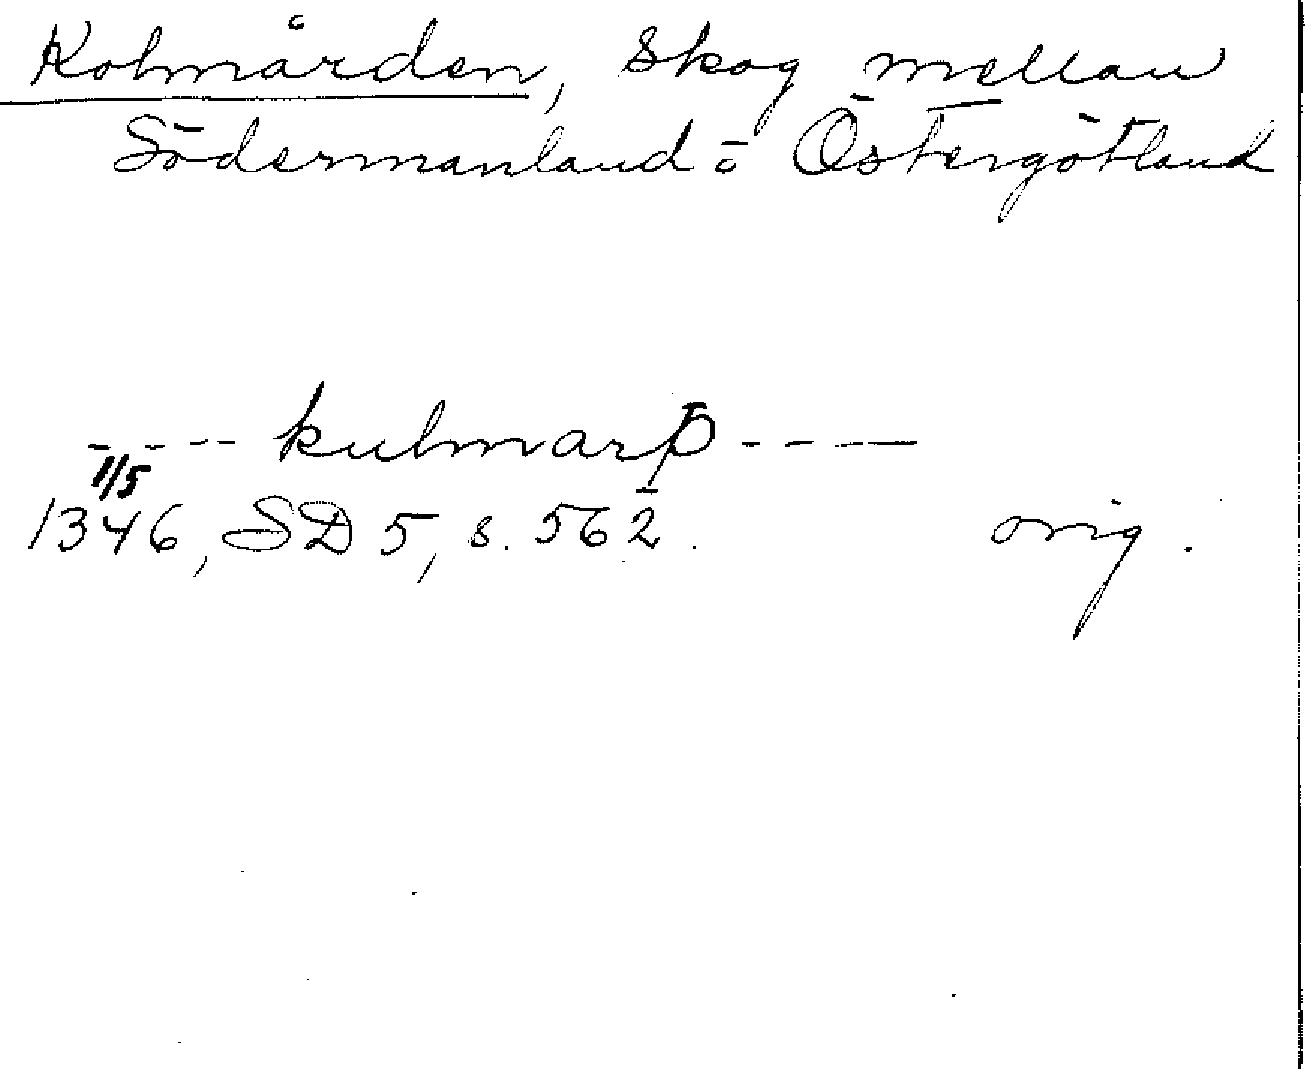 Kolmården, skog mellan
Södermanland o Östergötland
---- kulmarþ ----
1/5
1346, SD 5, s. 562. orig.